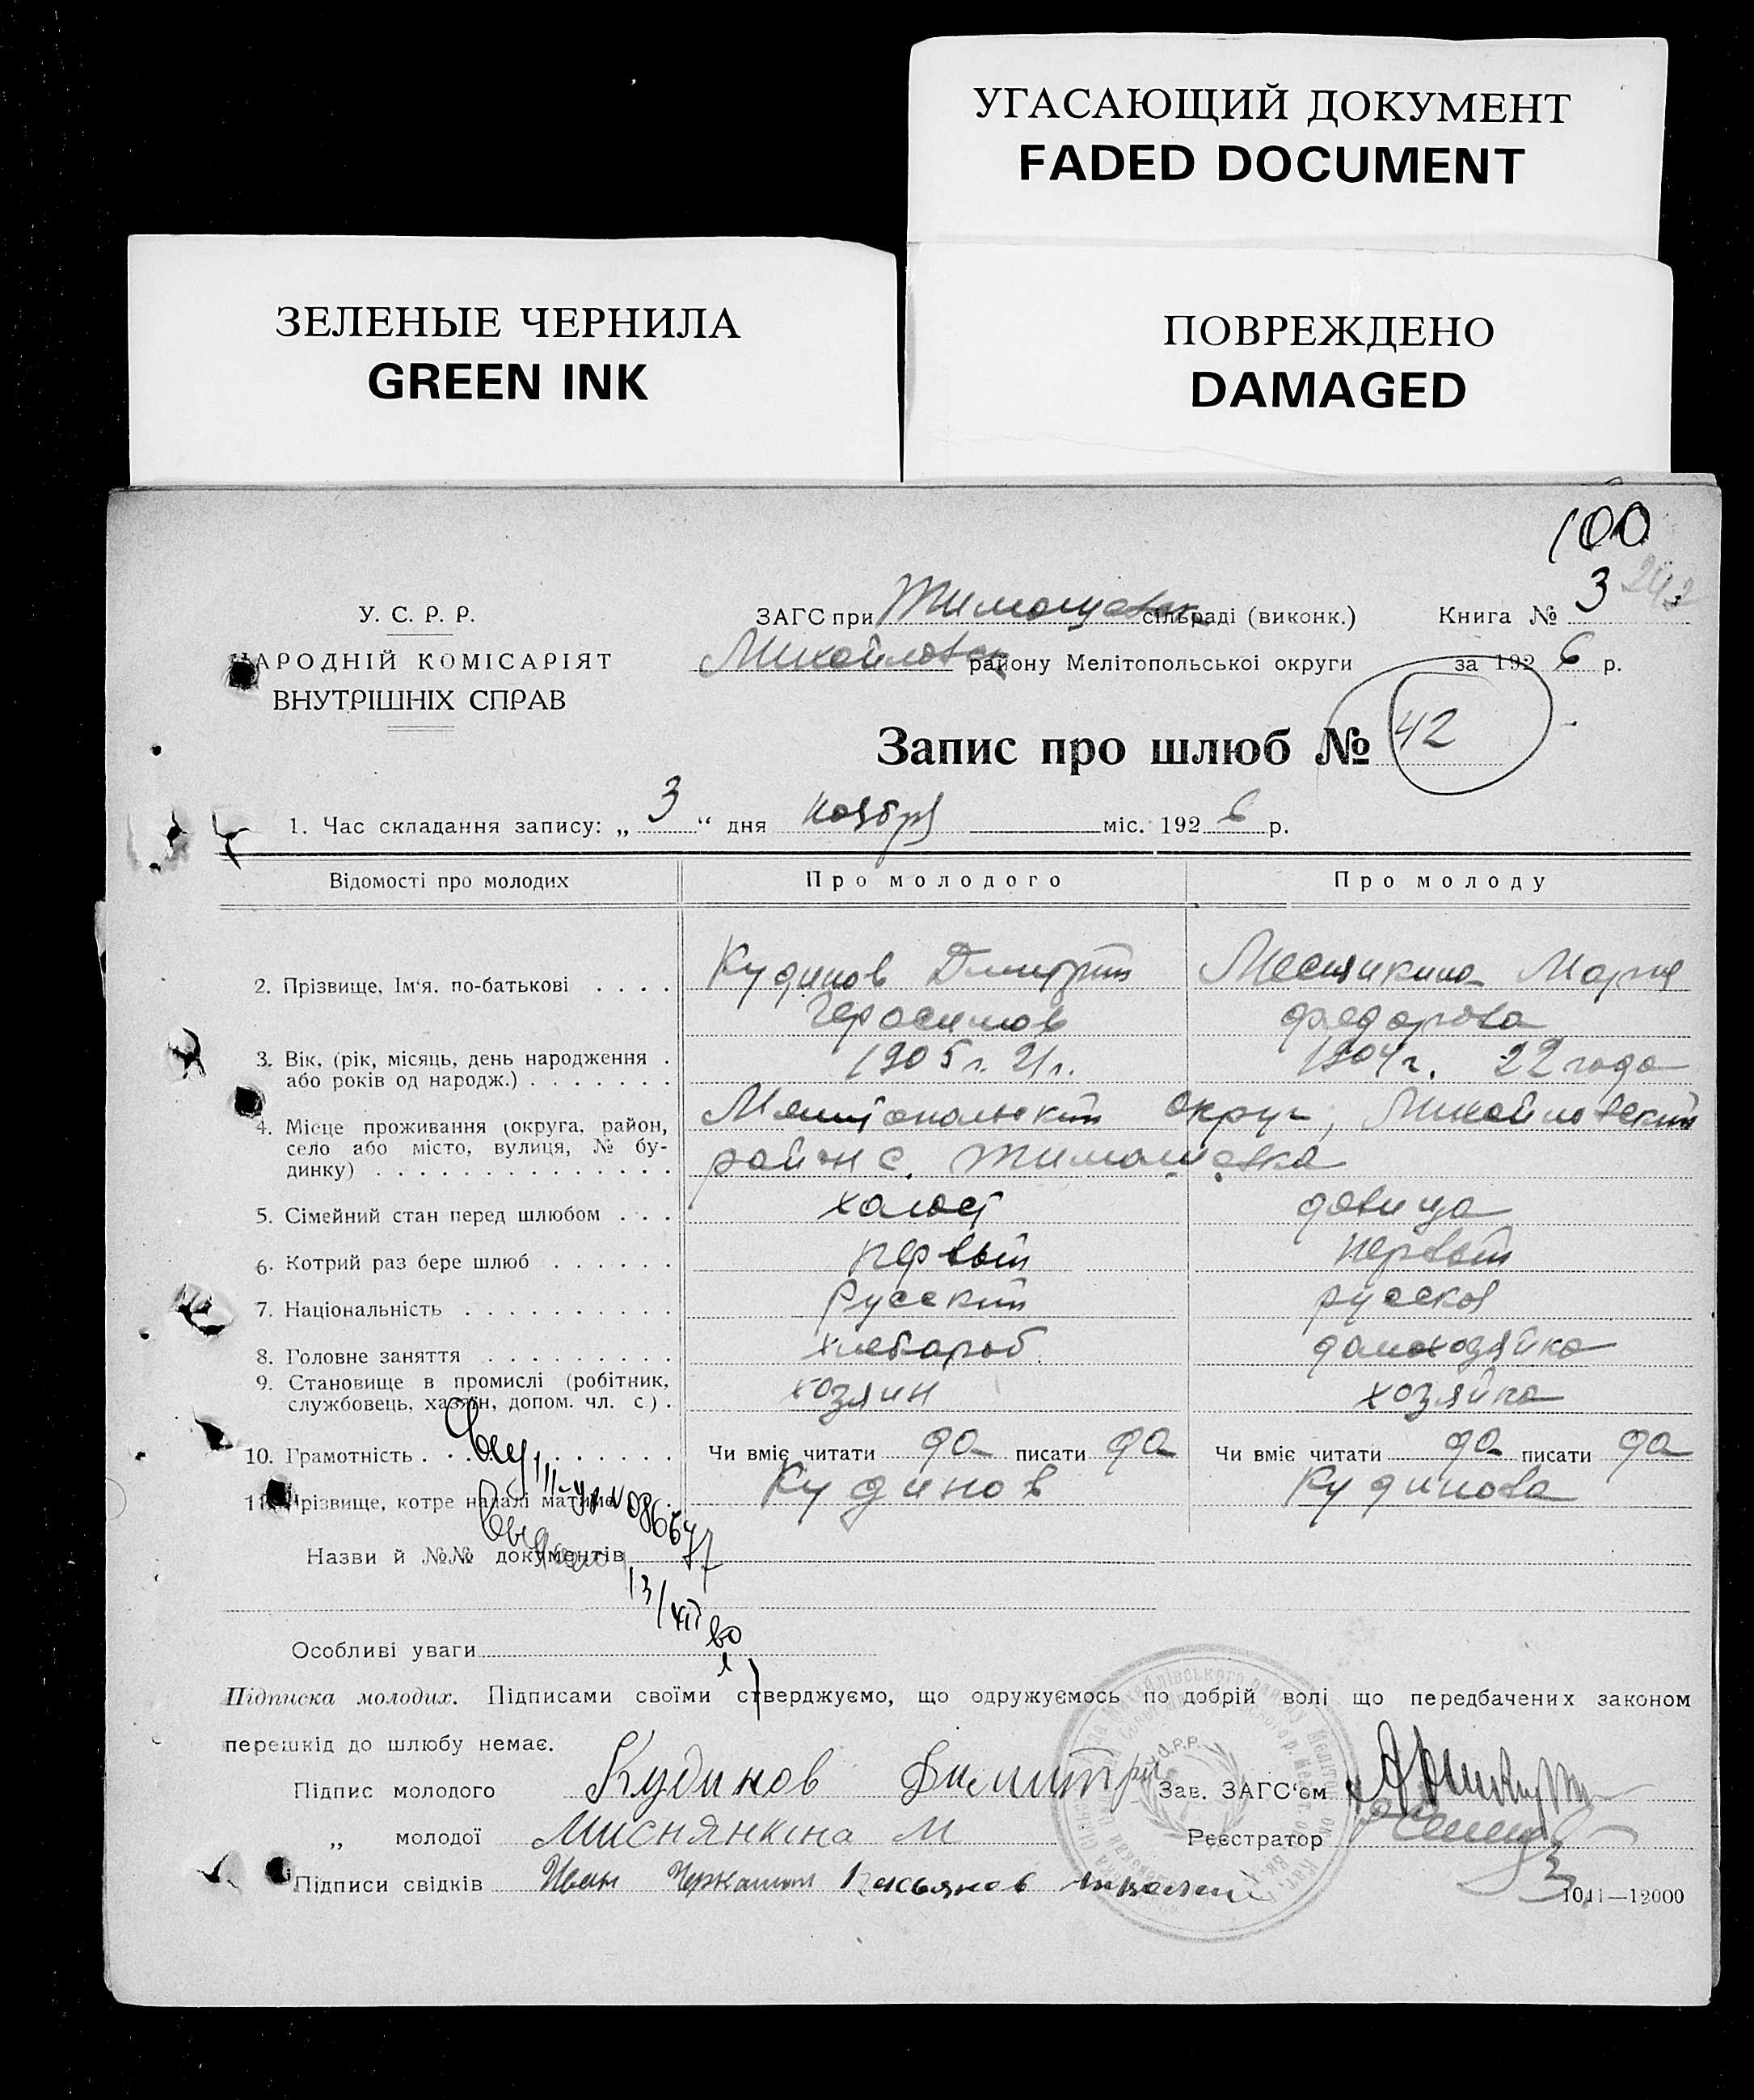 УГАСАЮЩИЙ ДОКУМЕНТ
FADED DOCUMENT
ЗЕЛЕНЫЕ ЧЕРНИЛА
GREEN INK
ПОВРЕЖДЕНО
DAMAGED
100
У. С. Р. Р.
НАРОДНІЙ КОМІСАРІЯТ
ВНУТРІШНІХ СПРАВ
ЗАГС при Тимошевск сільраді (виконк.) Книга № 3 242
Михайловск району Мелітопольської округи за 1926 р.
Запис про шлюб № 42
1. Час складання запису: „ 3 “ дня ноября міс. 1926 р.
Відомості про молодих Про молодого Про молоду
2. Прізвище, Ім'я, по-батькові . . . . Кудинов Дмитрий Мария
Герасимов Федорова
3. Вік, (рік, місяць, день народження . 1905 г. 21 г. 1904 г. 22 года
або років од народж.) . . . . . . .
4. Місце проживання (округа, район, Мелитопольский округ, Михайловский
село або місто, вулиця, № бу-
динку) . . . . . . . . . . . . . . район с. Тимошевка
5. Сімейний стан перед шлюбом . . . холост девица
6. Котрий раз бере шлюб . . . . . . первый первый
7. Національність . . . . . . . . . . Русский русская
8. Головне заняття . . . . . . . . . хлебароб домохозяйка
9. Становище в промислі (робітник, хозяин хозяйка
службовець, хазяїн, допом. чл. с.) .
10. Грамотність . . . . . . . . . . . Чи вміє читати да писати да Чи вміє читати да писати да
11. Прізвище, котре надалі матиме Кудинов Кудинова
Назви й №№ документів
13/XII
Особливі уваги
Підписка молодих. Підписами своїми стверджуємо, що одружуємось по добрій волі що передбачених законом
перешкід до шлюбу немає.
Підпис молодого Кудинов Димитрий Зав. ЗАГС'ом
„ молодої Миснянкина М Реєстратор
Підписи свідків Иван
1041—12000